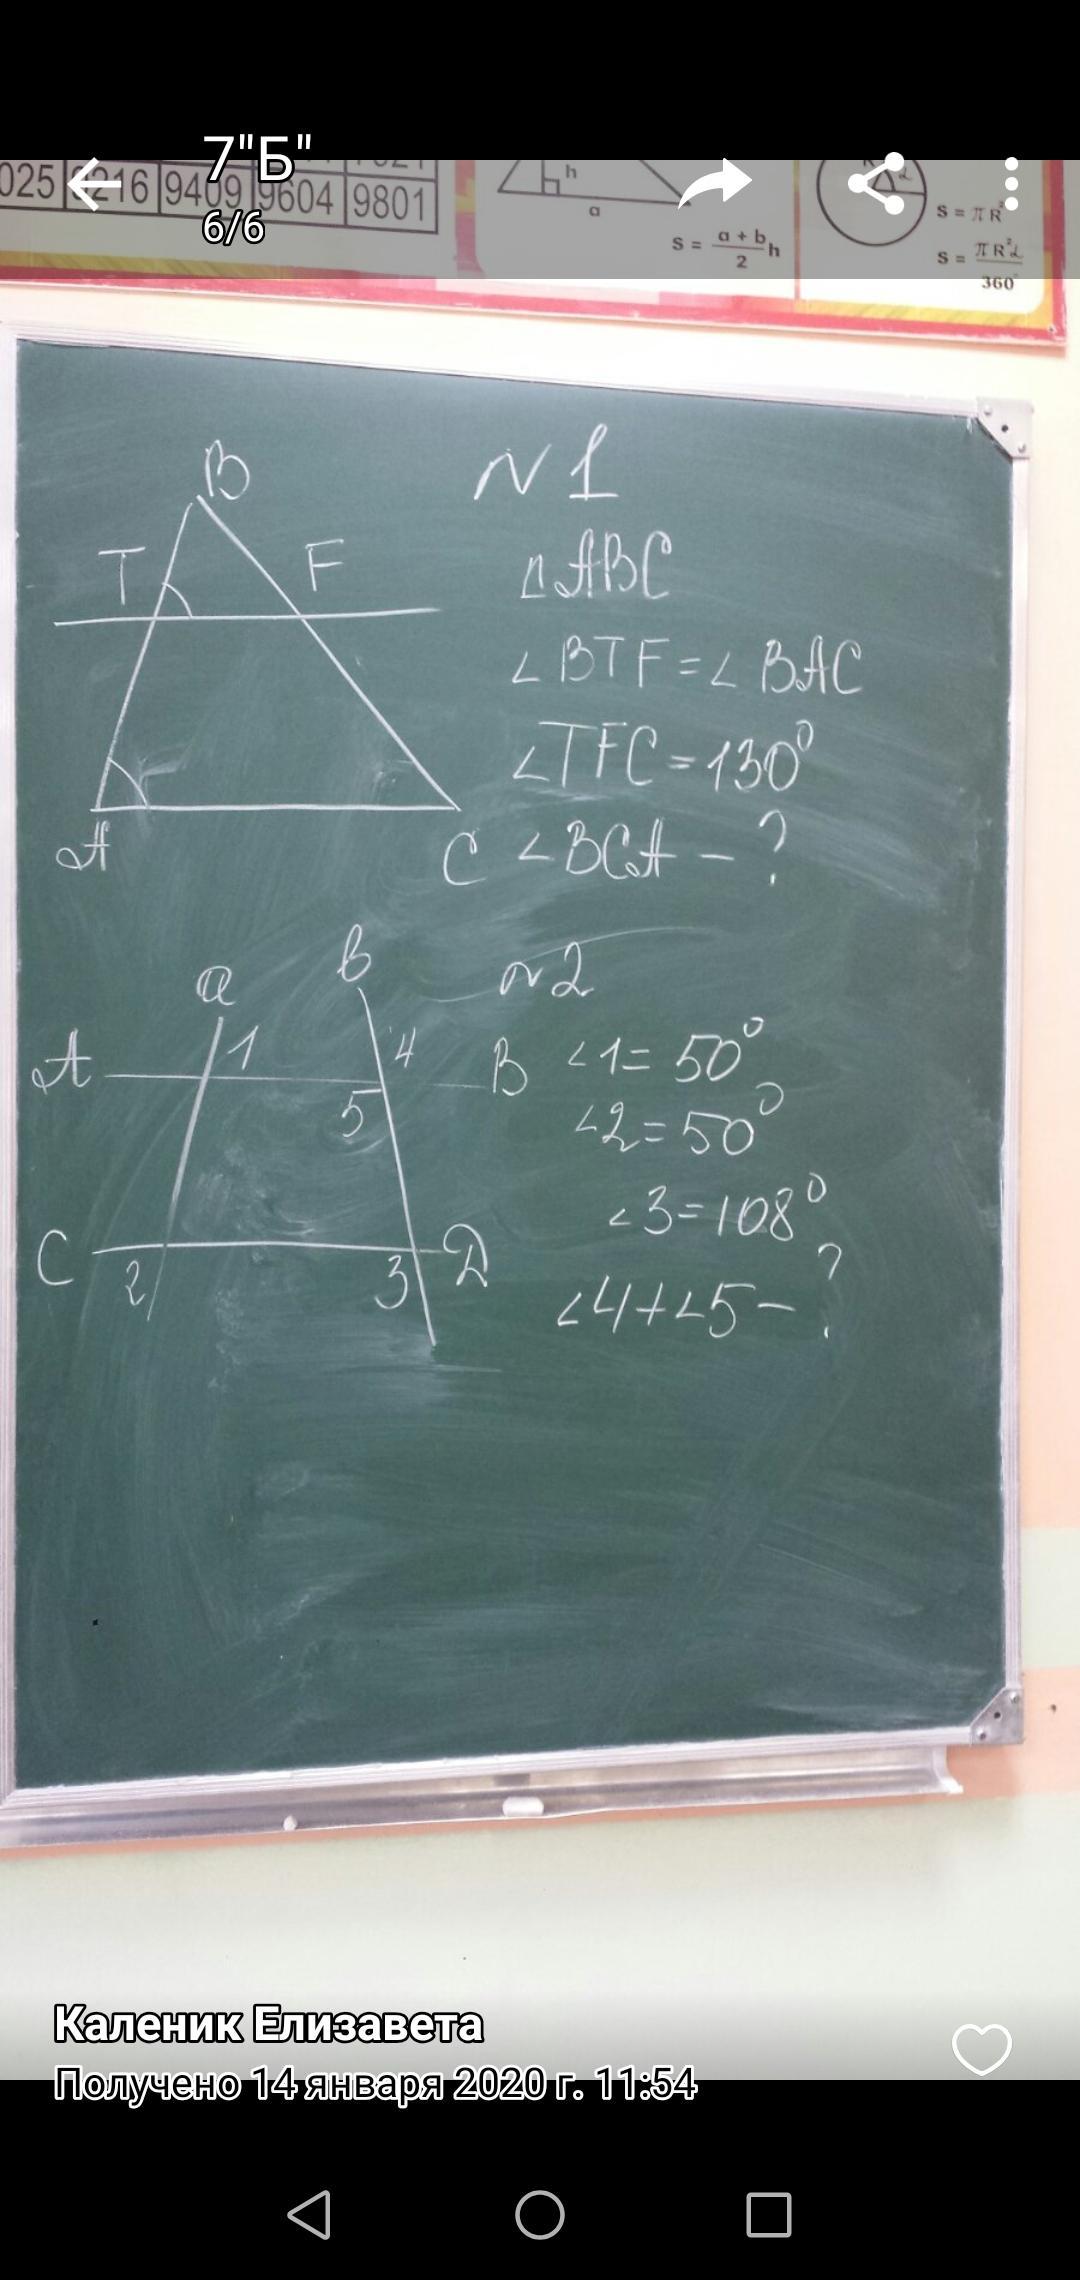 7"Б"
6/6
025 9216 9409 9604 9801
h
a
S = a + b / 2 h
S = π R²
S = π R² α / 360°
N 1
B
T F
A C
△ABC
∠BTF = ∠BAC
∠TFC = 130°
∠BCA - ?
N2
a b
A 1 4 B
5
C 2 3 D
∠1 = 50°
∠2 = 50°
∠3 = 108°
∠4 + ∠5 - ?
Каленик Елизавета
Получено 14 января 2020 г. 11:54